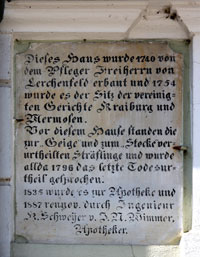 Dieses Haus wurde 1740 von
dem Pfleger Freiherrn von
Lerchenfeld erbaut und 1754
wurde es der Sitz der vereinig-
ten Gerichte Kraiburg und
Mermosen.
Vor diesem Hause standen die
zur Geige und zum Stocke ver-
urtheilten Sträflinge und wurde
allda 1796 das letzte Todesur-
theil gesprochen.
1835 wurde es zur Apotheke und
1887 renvov. durch Ingenieur
R. Schweyer v. J. N. Wimmer,
Apotheker.